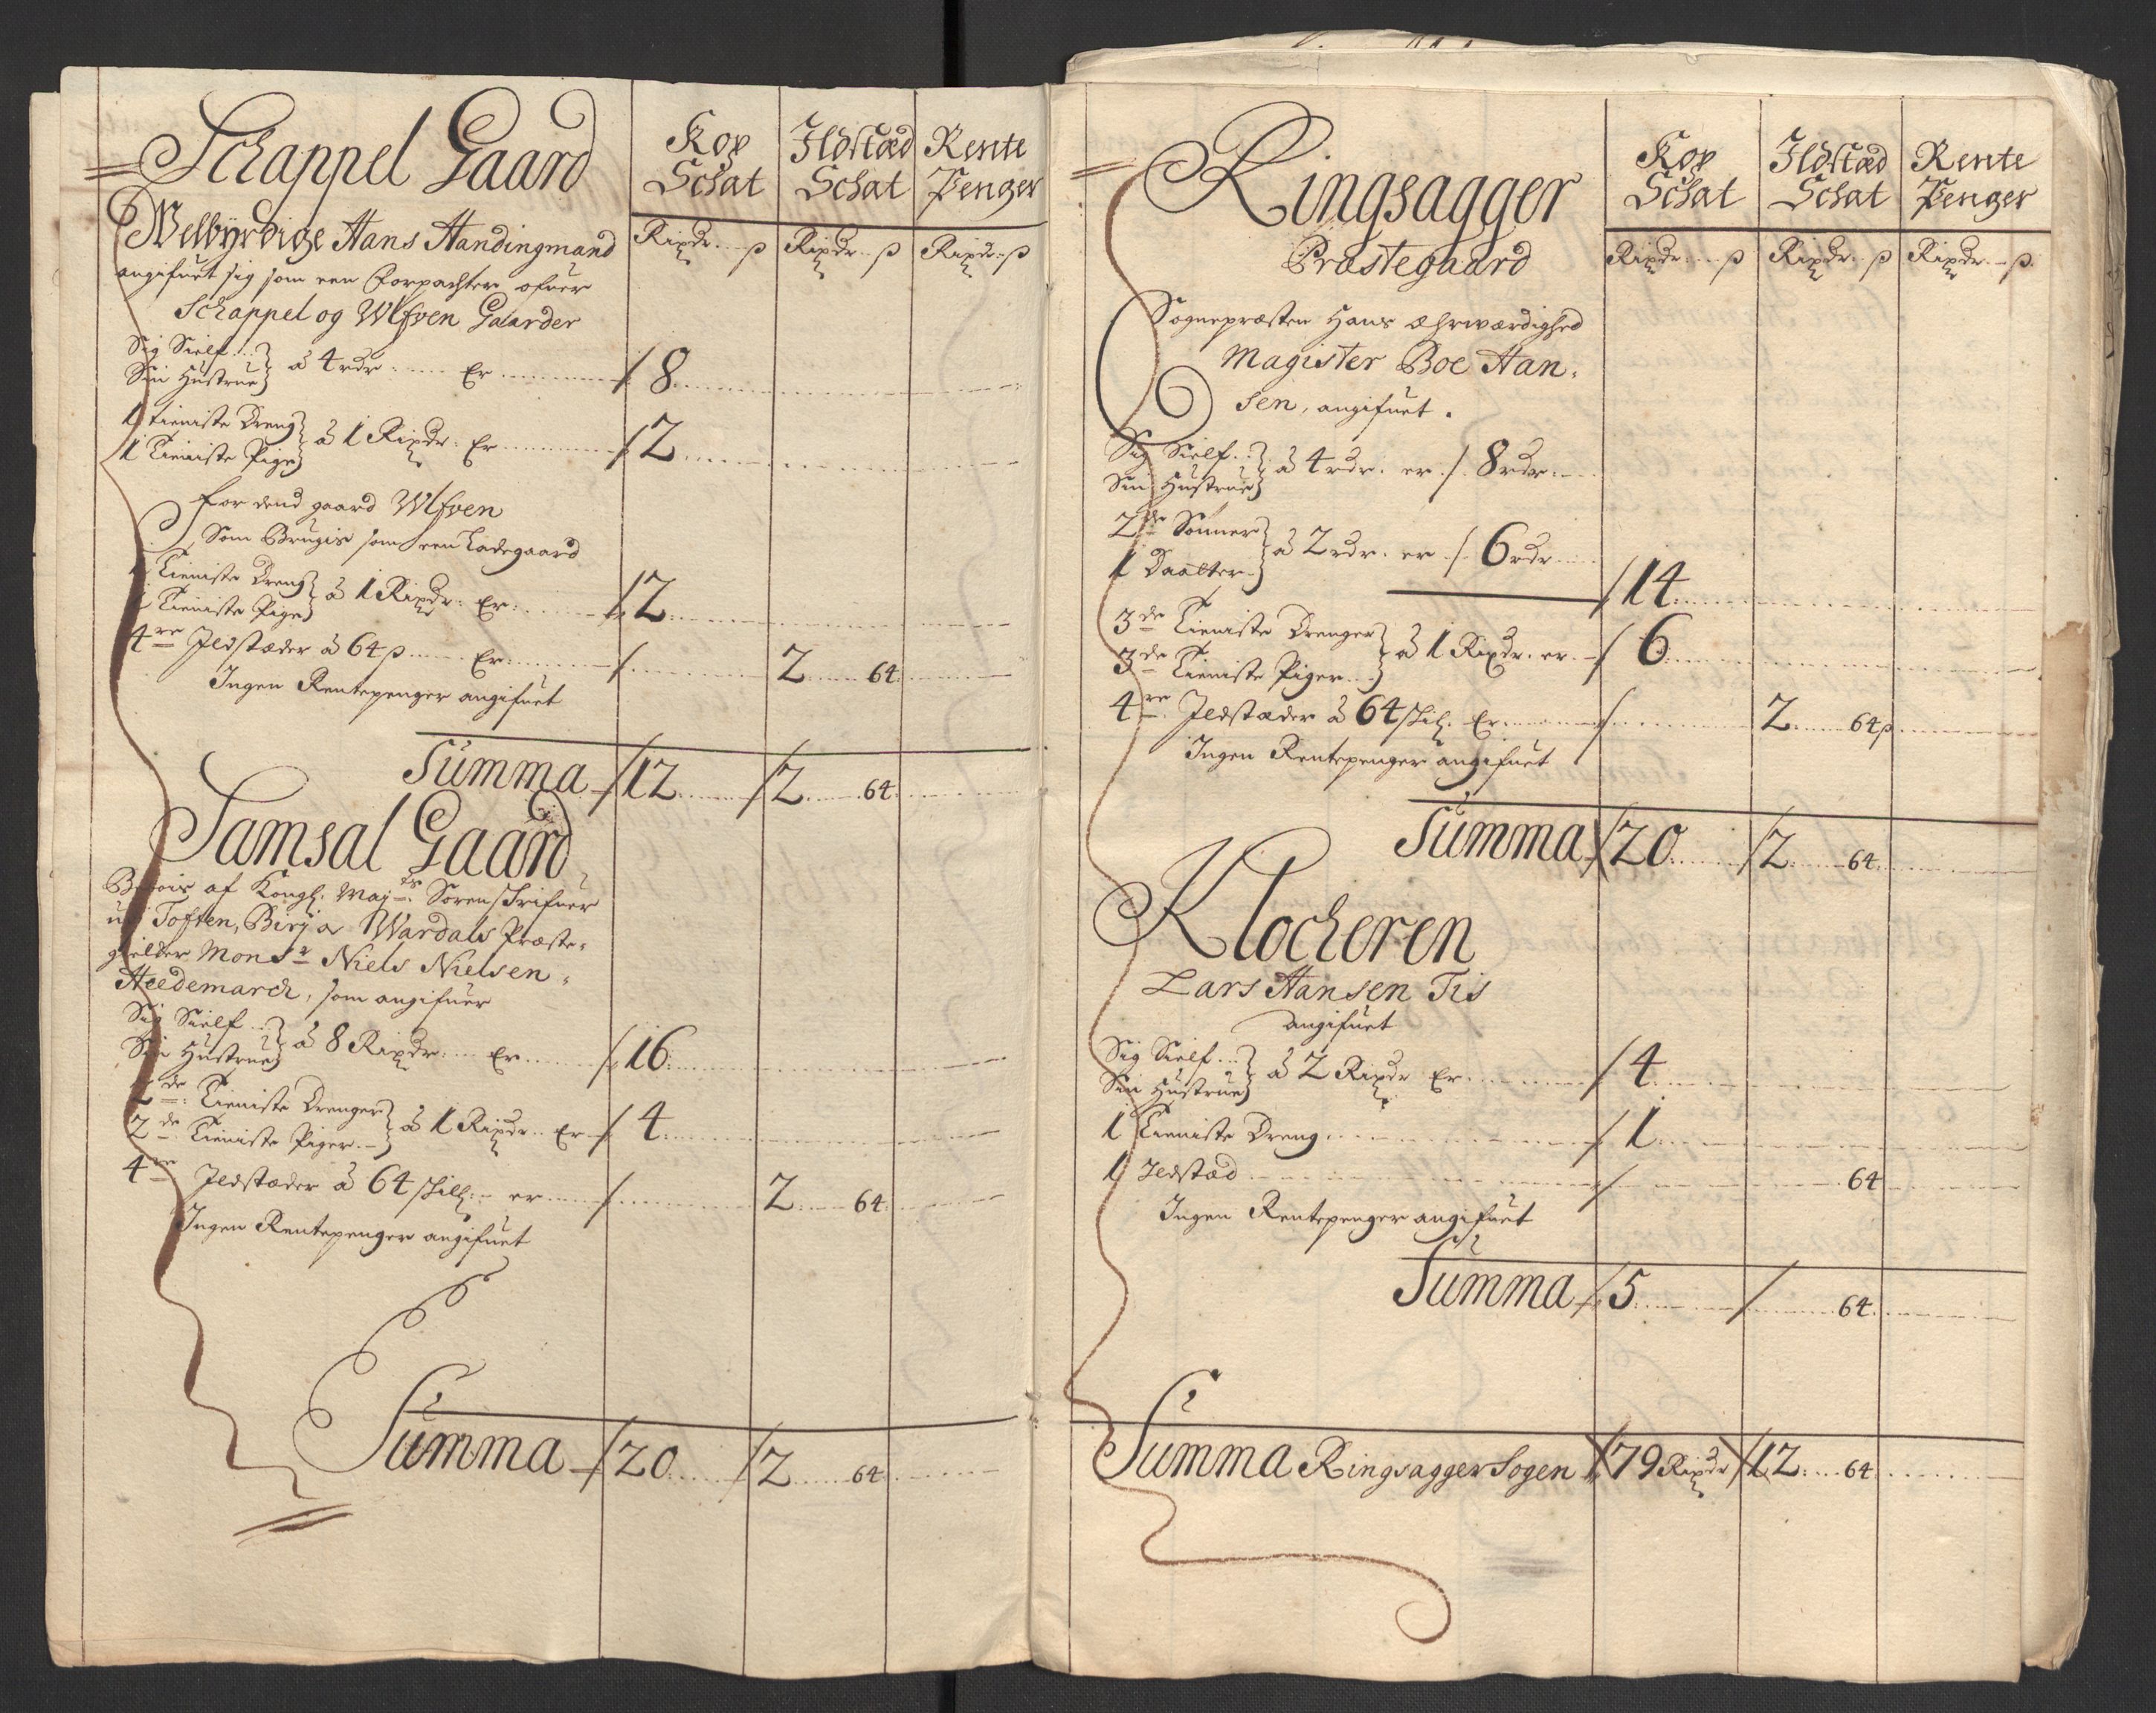 Schappel Gaard
Kop Schat
Ildstæd Schat
Rente Penger
Rixdr. ß
Rixdr. ß
Rixdr. ß
Welbÿrdige Hans Handingmand
angifuet sig som een Forpachter ofuer
Schappel og Wlfven Gaarder
Sig Sielf
Sin Hustrue à 4 rdr. Er / 8
1 Tieniste Dreng
1 Tieniste Pige à 1 Rixdr. Er / 2
for dend gaard Wlfven
Som Brugis som een Ladegaard
1 Tieniste Dreng
1 Tieniste Pige à 1 Rixdr. Er / 2
4re Ildstæder à 64 ß Er / 2 64
Ingen Rentepenger angifuet
Summa / 12 / 2 64
Samsal Gaard
af Kongl: Maj:ts Sorenschrifuer
udj Toften, Birj og Wardals Præste-
gielder Monsr Niels Nielsen
Heedemarck, som angifuer
Sig Sielf
Sin Hustrue à 8 Rixdr. Er / 16
2de Tieniste Drenger
2de Tieniste Piger à 1 Rixdr. Er / 4
4re Ildstæder à 64 skill: er / 2 64
Ingen Rentepenger angifuet
Summa / 20 / 2 64
Ringsagger
Præstegaard
Kop Schat
Ildstæd Schat
Rente Penger
Rixdr. ß
Rixdr. ß
Rixdr. ß
Sognepræsten Hans Ærwærdighed
Magister Boe Han-
sen, angifuet.
Sig Sielf
Sin Hustrue à 4 rdr. er / 8 rdr.
2de Sønner
1 Daatter à 2 rdr. er / 6 rdr
/ 14
3de Tieniste Drenger
3de Tieniste Piger à 1 Rixdr. er / 6
4re Ildstæder à 64 skil: Er / 2 64 ß
Ingen Rentepenger angifuet
Summa / 20 / 2 64
Klocheren
Lars Hansen Tis
angifuet
Sig Sielf
Sin Hustrue à 2 Rixdr Er / 4
1 Tieniste Dreng / 1
1 Ildstæd / 64
Ingen Rentepenger angifuet
Summa / 5 / 64
Summa Ringsagger Sogen / 79 Rixdr / 12 64